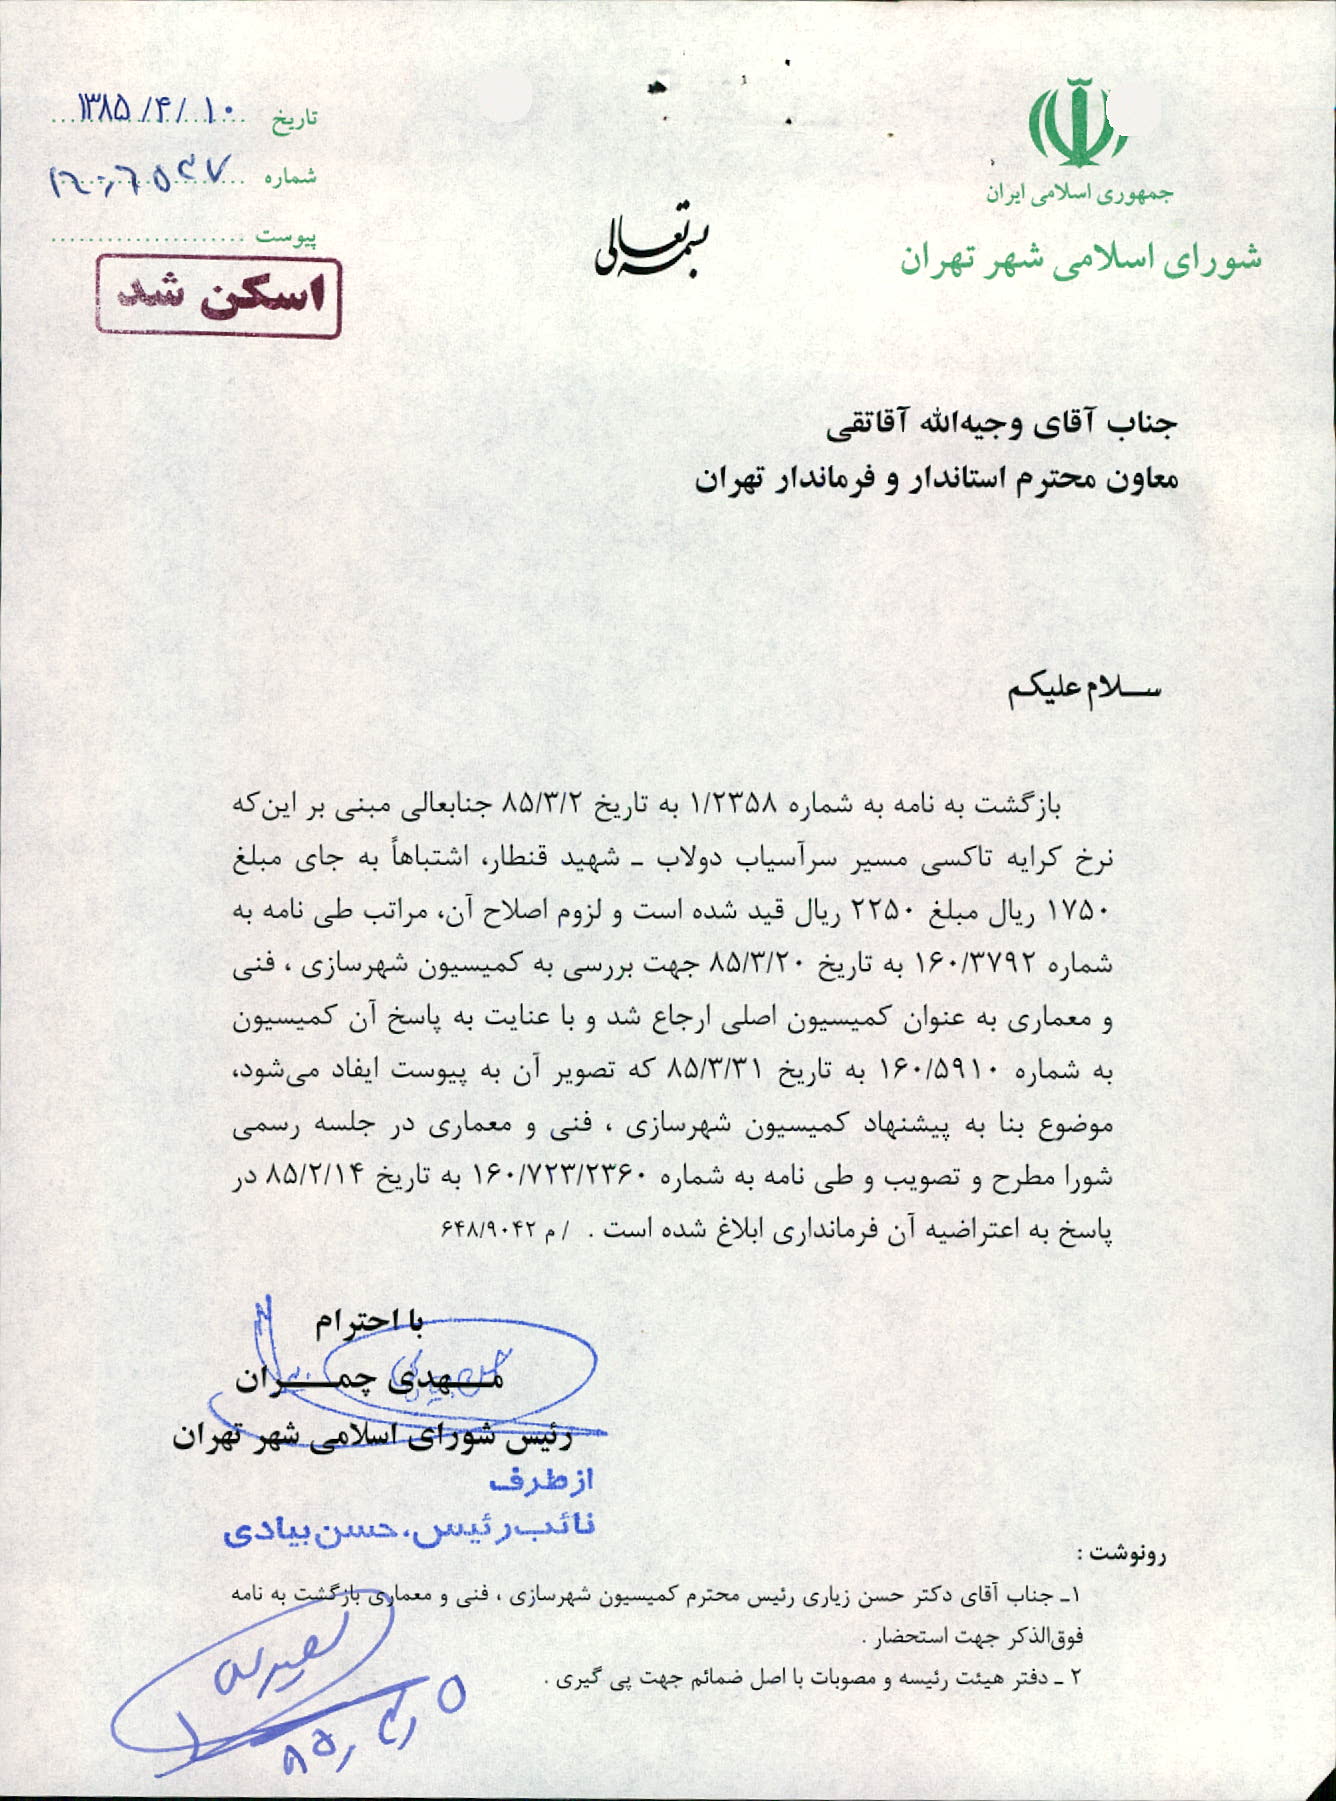 تاریخ ۱۳۸۵/۴/۱۰
شماره
پیوست
اسکن شد
جمهوری اسلامی ایران
شورای اسلامی شهر تهران
بسمه تعالی
جناب آقای وجیه‌الله آقاتقی
معاون محترم استاندار و فرماندار تهران
سلام علیکم
بازگشت به نامه به شماره ۱/۲۳۵۸ به تاریخ ۸۵/۳/۲ جنابعالی مبنی بر این‌که
نرخ کرایه تاکسی مسیر سرآسیاب دولاب ـ شهید قنطار، اشتباهاً به جای مبلغ
۱۷۵۰ ریال مبلغ ۲۲۵۰ ریال قید شده است و لزوم اصلاح آن، مراتب طی نامه به
شماره ۱۶۰/۳۷۹۲ به تاریخ ۸۵/۳/۲۰ جهت بررسی به کمیسیون شهرسازی ، فنی
و معماری به عنوان کمیسیون اصلی ارجاع شد و با عنایت به پاسخ آن کمیسیون
به شماره ۱۶۰/۵۹۱۰ به تاریخ ۸۵/۳/۳۱ که تصویر آن به پیوست ایفاد می‌شود،
موضوع بنا به پیشنهاد کمیسیون شهرسازی ، فنی و معماری در جلسه رسمی
شورا مطرح و تصویب و طی نامه به شماره ۱۶۰/۷۲۳/۲۳۶۰ به تاریخ ۸۵/۲/۱۴ در
پاسخ به اعتراضیه آن فرمانداری ابلاغ شده است . / م ۶۴۸/۹۰۴۲
با احترام
مهدی چمران
رئیس شورای اسلامی شهر تهران
از طرف
نائب رئیس، حسن بیادی
رونوشت :
۱ـ جناب آقای دکتر حسن زیاری رئیس محترم کمیسیون شهرسازی ، فنی و معماری بازگشت به نامه
فوق‌الذکر جهت استحضار .
۲ ـ دفتر هیئت رئیسه و مصوبات با اصل ضمائم جهت پی گیری .